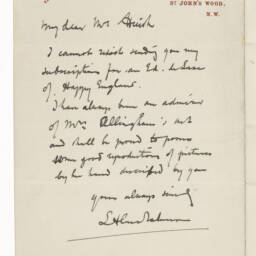 ST JOHN'S WOOD,
N.W.
My dear Mr Huish
I cannot resist sending you my
subscription for an Ed. de Luxe
of Happy England.
I have always been an admirer
of Mrs Allingham's art
and shall be proud to possess
some good reproductions of pictures
by her hand described by you
yours always